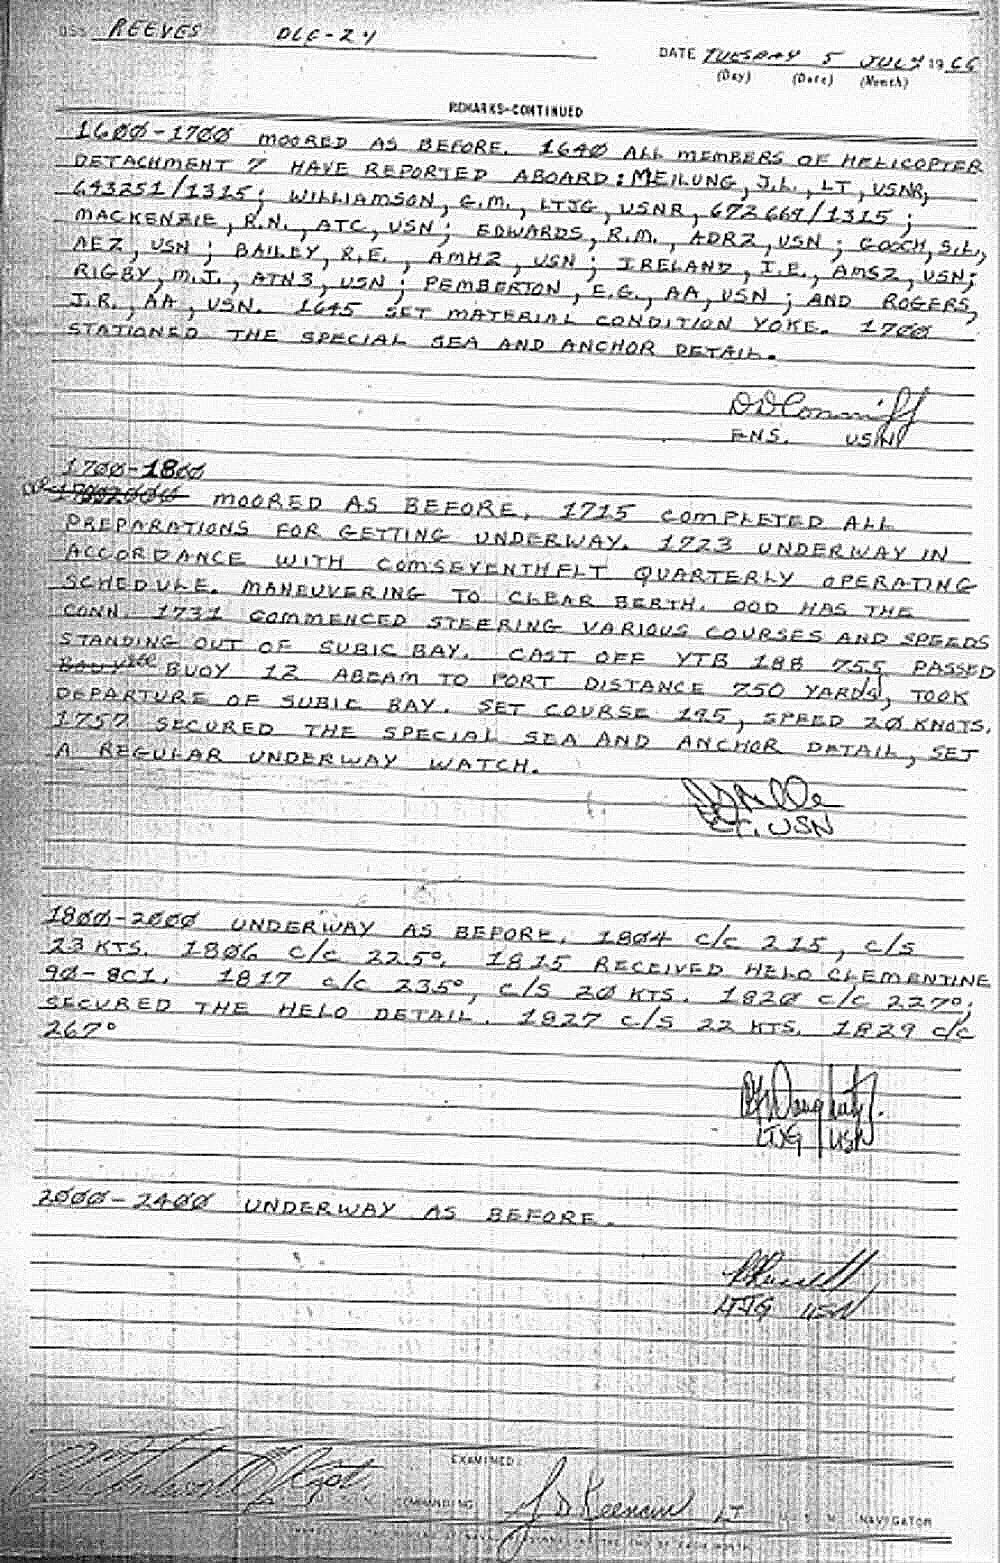 USS REEVES DLG-24
DATE TUESDAY 5 JULY 1966
(Day) (Date) (Month)
REMARKS-CONTINUED
16ØØ-17ØØ MOORED AS BEFORE. 164Ø ALL MEMBERS OF HELICOPTER
DETACHMENT 7 HAVE REPORTED ABOARD: MEILUNG, J.L., LT, USNR,
643251/1315; WILLIAMSON, G.M., LTJG, USNR, 672669/1315;
MACKENZIE, R.N., ATC, USN; EDWARDS, R.M., ADR2, USN; GOOCH, S.L.,
AE2, USN; BAILEY, R.E., AMH2, USN; IRELAND, I.E., AMS2, USN;
RIGBY, M.J., ATN3, USN; PEMBERTON, E.G., AA, USN; AND ROGERS,
J.R., AA, USN. 1645 SET MATERIAL CONDITION YOKE. 17ØØ
STATIONED THE SPECIAL SEA AND ANCHOR DETAIL.
ENS. USN
17ØØ-18ØØ
MOORED AS BEFORE. 1715 COMPLETED ALL
PREPARATIONS FOR GETTING UNDERWAY. 1723 UNDERWAY IN
ACCORDANCE WITH COMSEVENTHFLT QUARTERLY OPERATING
SCHEDULE. MANEUVERING TO CLEAR BERTH. OOD HAS THE
CONN. 1731 COMMENCED STEERING VARIOUS COURSES AND SPEEDS
STANDING OUT OF SUBIC BAY. CAST OFF YTB 188 PASSED
BUOY 12 ABEAM TO PORT DISTANCE 750 YARDS, TOOK
DEPARTURE OF SUBIC BAY. SET COURSE 195, SPEED 2Ø KNOTS.
1757 SECURED THE SPECIAL SEA AND ANCHOR DETAIL, SET
A REGULAR UNDERWAY WATCH.
USN
18ØØ-2ØØØ UNDERWAY AS BEFORE. 18Ø4 C/C 215, C/S
23 KTS. 18Ø6 C/C 225°. 1815 RECEIVED HELO CLEMENTINE
9Ø-8C1. 1817 C/C 235°, C/S 2Ø KTS. 182Ø C/C 227°;
SECURED THE HELO DETAIL. 1827 C/S 22 KTS. 1829 C/C
267°
LTJG USN
2ØØØ-24ØØ UNDERWAY AS BEFORE.
LTJG USN
EXAMINED:
COMMANDING J D Keenan LT U.S.N. NAVIGATOR